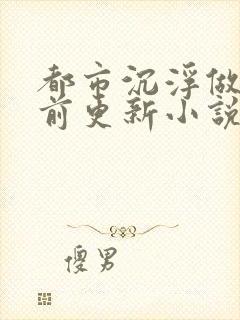 都市沉浮做
前更新小說
傻男